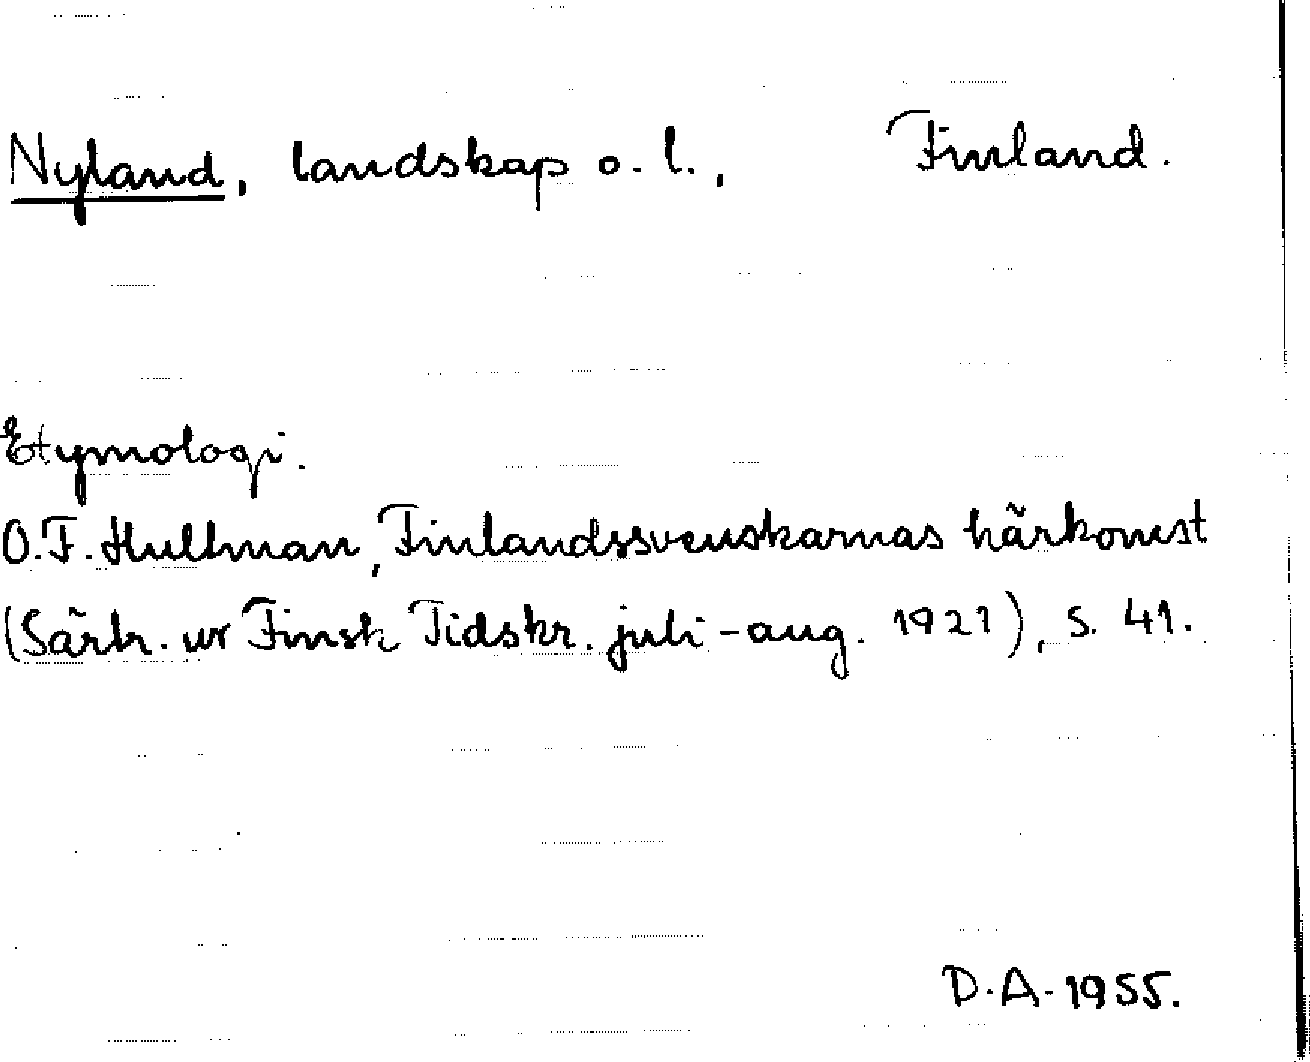 Nyland, landskap o. l., Finland.
Etymologi.
O. F. Hultman, Finlandssvenskarnas härkomst
(Särtr. ur Finsk Tidskr. juli-aug. 1921), s. 41.
D. A. 1955.